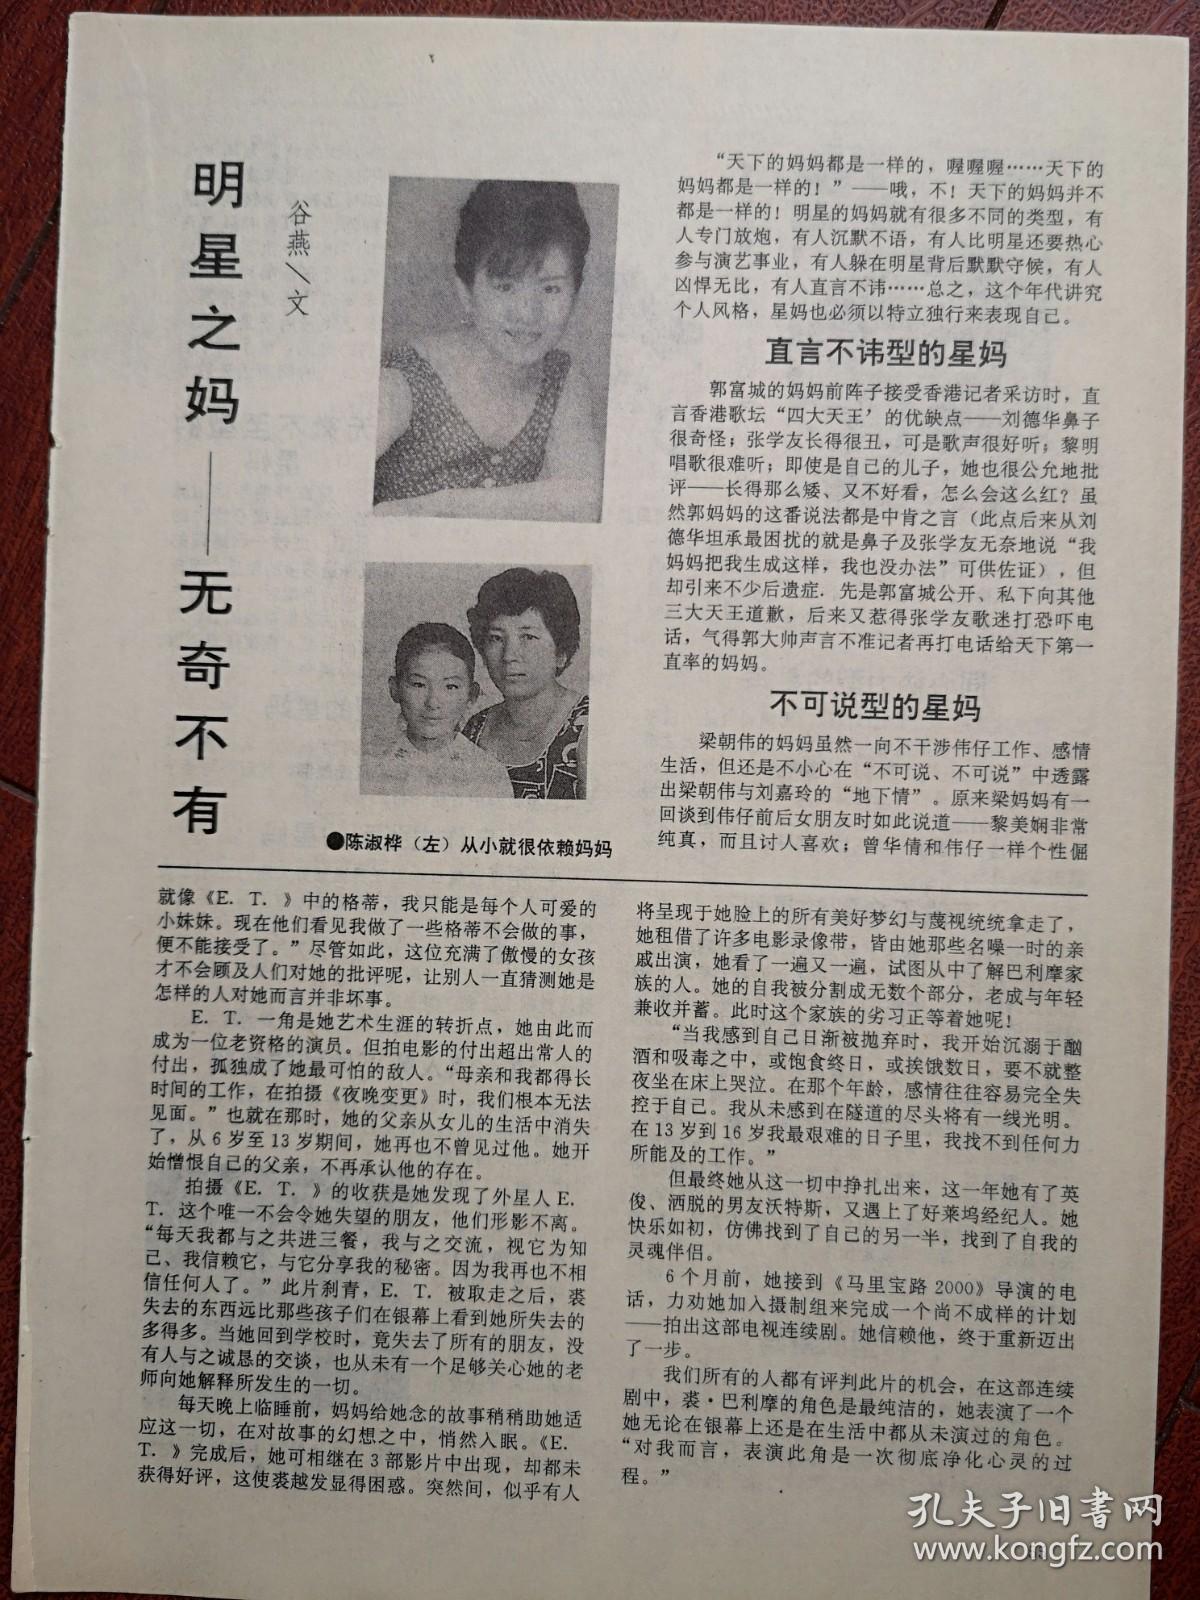 明星之妈——无奇不有
谷燕/文
●陈淑桦（左）从小就很依赖妈妈
“天下的妈妈都是一样的，喔喔喔……天下的
妈妈都是一样的！”——哦，不！天下的妈妈并不
都是一样的！明星的妈妈就有很多不同的类型，有
人专门放炮，有人沉默不语，有人比明星还要热心
参与演艺事业，有人躲在明星背后默默守候，有人
凶悍无比，有人直言不讳……总之，这个年代讲究
个人风格，星妈也必须以特立独行来表现自己。
直言不讳型的星妈
郭富城的妈妈前阵子接受香港记者采访时，直
言香港歌坛“四大天王’的优缺点——刘德华鼻子
很奇怪；张学友长得很丑，可是歌声很好听；黎明
唱歌很难听；即使是自己的儿子，她也很公允地批
评——长得那么矮、又不好看，怎么会这么红？虽
然郭妈妈的这番说法都是中肯之言（此点后来从刘
德华坦承最困扰的就是鼻子及张学友无奈地说“我
妈妈把我生成这样，我也没办法”可供佐证），但
却引来不少后遗症．先是郭富城公开、私下向其他
三大天王道歉，后来又惹得张学友歌迷打恐吓电
话，气得郭大帅声言不准记者再打电话给天下第一
直率的妈妈。
不可说型的星妈
梁朝伟的妈妈虽然一向不干涉伟仔工作、感情
生活，但还是不小心在“不可说、不可说”中透露
出梁朝伟与刘嘉玲的“地下情”。原来梁妈妈有一
回谈到伟仔前后女朋友时如此说道——黎美娴非常
纯真，而且讨人喜欢；曾华倩和伟仔一样个性倔
就像《E．T．》中的格蒂，我只能是每个人可爱的
小妹妹。现在他们看见我做了一些格蒂不会做的事，
便不能接受了。”尽管如此，这位充满了傲慢的女孩
才不会顾及人们对她的批评呢，让别人一直猜测她是
怎样的人对她而言并非坏事。
E．T．一角是她艺术生涯的转折点，她由此而
成为一位老资格的演员。但拍电影的付出超出常人的
付出，孤独成了她最可怕的敌人。“母亲和我都得长
时间的工作，在拍摄《夜晚变更》时，我们根本无法
见面。”也就在那时，她的父亲从女儿的生活中消失
了，从6岁至13岁期间，她再也不曾见过他。她开
始憎恨自己的父亲，不再承认他的存在。
拍摄《E．T．》的收获是她发现了外星人E．
T．这个唯一不会令她失望的朋友，他们形影不离。
“每天我都与之共进三餐，我与之交流，视它为知
己、我信赖它，与它分享我的秘密。因为我再也不相
信任何人了。”此片刹青，E．T．被取走之后，裘
失去的东西远比那些孩子们在银幕上看到她所失去的
多得多。当她回到学校时，竟失去了所有的朋友，没
有人与之诚恳的交谈，也从未有一个足够关心她的老
师向她解释所发生的一切。
每天晚上临睡前，妈妈给她念的故事稍稍助她适
应这一切，在对故事的幻想之中，悄然入眠。《E．
T．》完成后，她可相继在3部影片中出现，却都未
获得好评，这使裘越发显得困惑。突然间，似乎有人
将呈现于她脸上的所有美好梦幻与蔑视统统拿走了，
她租借了许多电影录像带，皆由她那些名噪一时的亲
戚出演，她看了一遍又一遍，试图从中了解巴利摩家
族的人。她的自我被分割成无数个部分，老成与年轻
兼收并蓄。此时这个家族的劣习正等着她呢！
“当我感到自己日渐被抛弃时，我开始沉溺于酗
酒和吸毒之中，或饱食终日，或挨饿数日，要不就整
夜坐在床上哭泣。在那个年龄，感情往往容易完全失
控于自己。我从未感到在隧道的尽头将有一线光明。
在13岁到16岁我最艰难的日子里，我找不到任何力
所能及的工作。”
但最终她从这一切中挣扎出来，这一年她有了英
俊、洒脱的男友沃特斯，又遇上了好莱坞经纪人。她
快乐如初，仿佛找到了自己的另一半，找到了自我的
灵魂伴侣。
6个月前，她接到《马里宝路2000》导演的电
话，力劝她加入摄制组来完成一个尚不成样的计划
——拍出这部电视连续剧。她信赖他，终于重新迈出
了一步。
我们所有的人都有评判此片的机会，在这部连续
剧中，裘·巴利摩的角色是最纯洁的，她表演了一个
她无论在银幕上还是在生活中都从未演过的角色。
“对我而言，表演此角是一次彻底净化心灵的过
程。”
孔夫子旧书网
www.kongfz.com